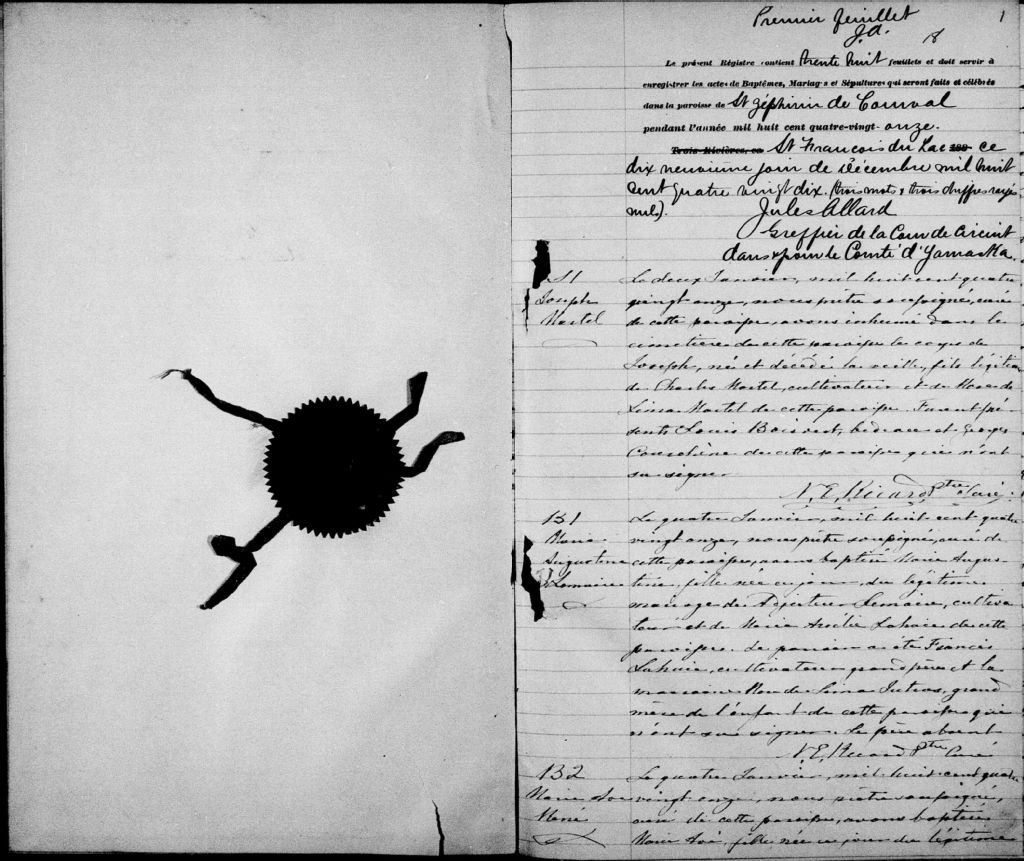 Premier feuillet
1
J.A.
Le présent Régistre contient trente huit feuillets et doit servir à
enregistrer les actes de Baptêmes, Mariages et Sépultures qui seront faits et célébrés
dans la paroisse de St Zéphirin de Courval
pendant l'année mil huit cent quatre-vingt-onze.
Trois-Rivières, ce St François du Lac 188 ce
dix neuvième jour de Décembre mil huit
cent quatre vingt dix. (trois mots & trois chiffres rayés
nuls).
Jules Allard
Greffier de la Cour de Circuit
dans & pour le Comté d'Yamaska.
S1
Joseph
Martel
Le deux Janvier, mil huit cent quatre
vingt onze, nous prêtre soussigné, curé
de cette paroisse, avons inhumé dans le
cimetière de cette paroisse le corps de
Joseph, né et décédé la veille, fils légitime
de Charles Martel, cultivateur et de Rose de
Lima Martel de cette paroisse. Furent pré-
sents Louis Boisvert, bedeau et Georges
de cette paroisse qui n'ont
su signer.
N. E. Ricard Ptre Curé
B1
Marie
Augustine
Lemaire
Le quatre Janvier, mil huit cent quatre
vingt onze, nous prêtre soussigné, curé de
cette paroisse, avons baptisé Marie Augus-
tine, fille née ce jour, du légitime
mariage de Lemaire, cultiva
teur et de Marie Amélie Lahaie de cette
paroisse. Le parrain a été Francis
Lahaie, cultivateur grand père et la
marraine Rose de Lima Jutras, grand
mère de l'enfant de cette paroisse qui
n'ont su signer. Le père absent
N. E. Ricard Ptre Curé
B2
Marie
Le quatre Janvier, mil huit cent quatre
vingt onze, nous prêtre soussigné,
curé de cette paroisse, avons baptisé
Marie fille née ce jour du légitime